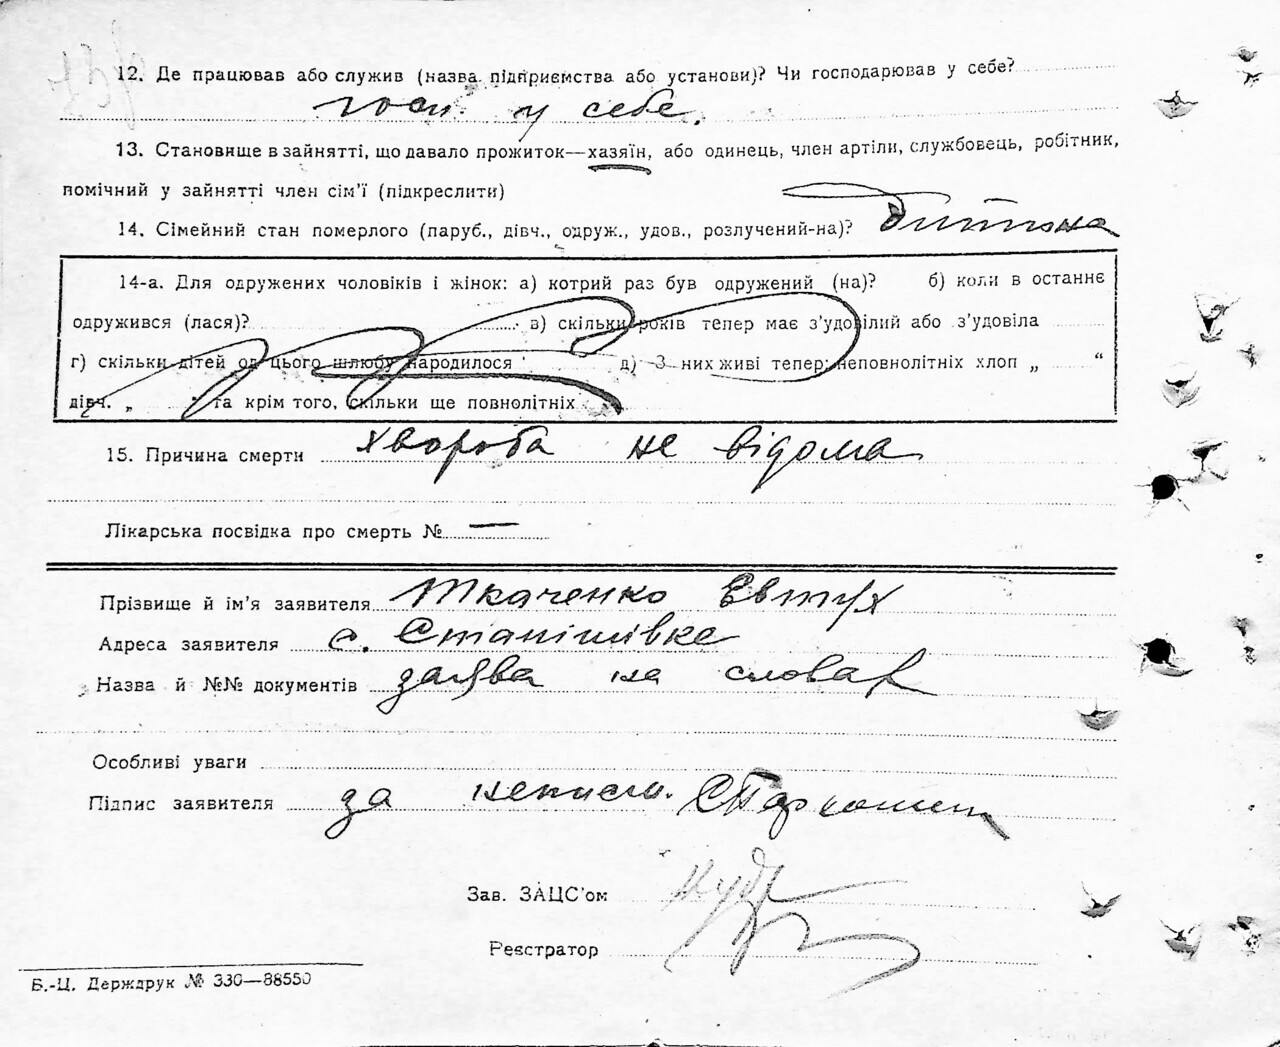 12. Де працював або служив (назва підприємства або установи)? Чи господарював у себе?
госп. у себе.
13. Становище в зайнятті, що давало прожиток—хазяїн, або одинець, член артіли, службовець, робітник,
помічний у зайнятті член сім'ї (підкреслити)
14. Сімейний стан померлого (паруб., дівч., одруж., удов., розлучений-на)? дитина
14-а. Для одружених чоловіків і жінок: а) котрий раз був одружений (на)? б) коли в останнє
одружився (лася)? в) скільки років тепер має з'удовілий або з'удовіла
г) скільки дітей од цього шлюбу народилося д) З них живі тепер: неповнолітніх хлоп „ “
дівч. „ “ та крім того, скільки ще повнолітніх
15. Причина смерти хвороба не відома
Лікарська посвідка про смерть № —
Прізвище й ім'я заявителя Ткаченко Евтух
Адреса заявителя с. Станішівка
Назва й №№ документів заява на словах
Особливі уваги
Підпис заявителя за неписм.
Зав. ЗАЦС'ом
Реєстратор
Б.-Ц. Держдрук № 330—88550